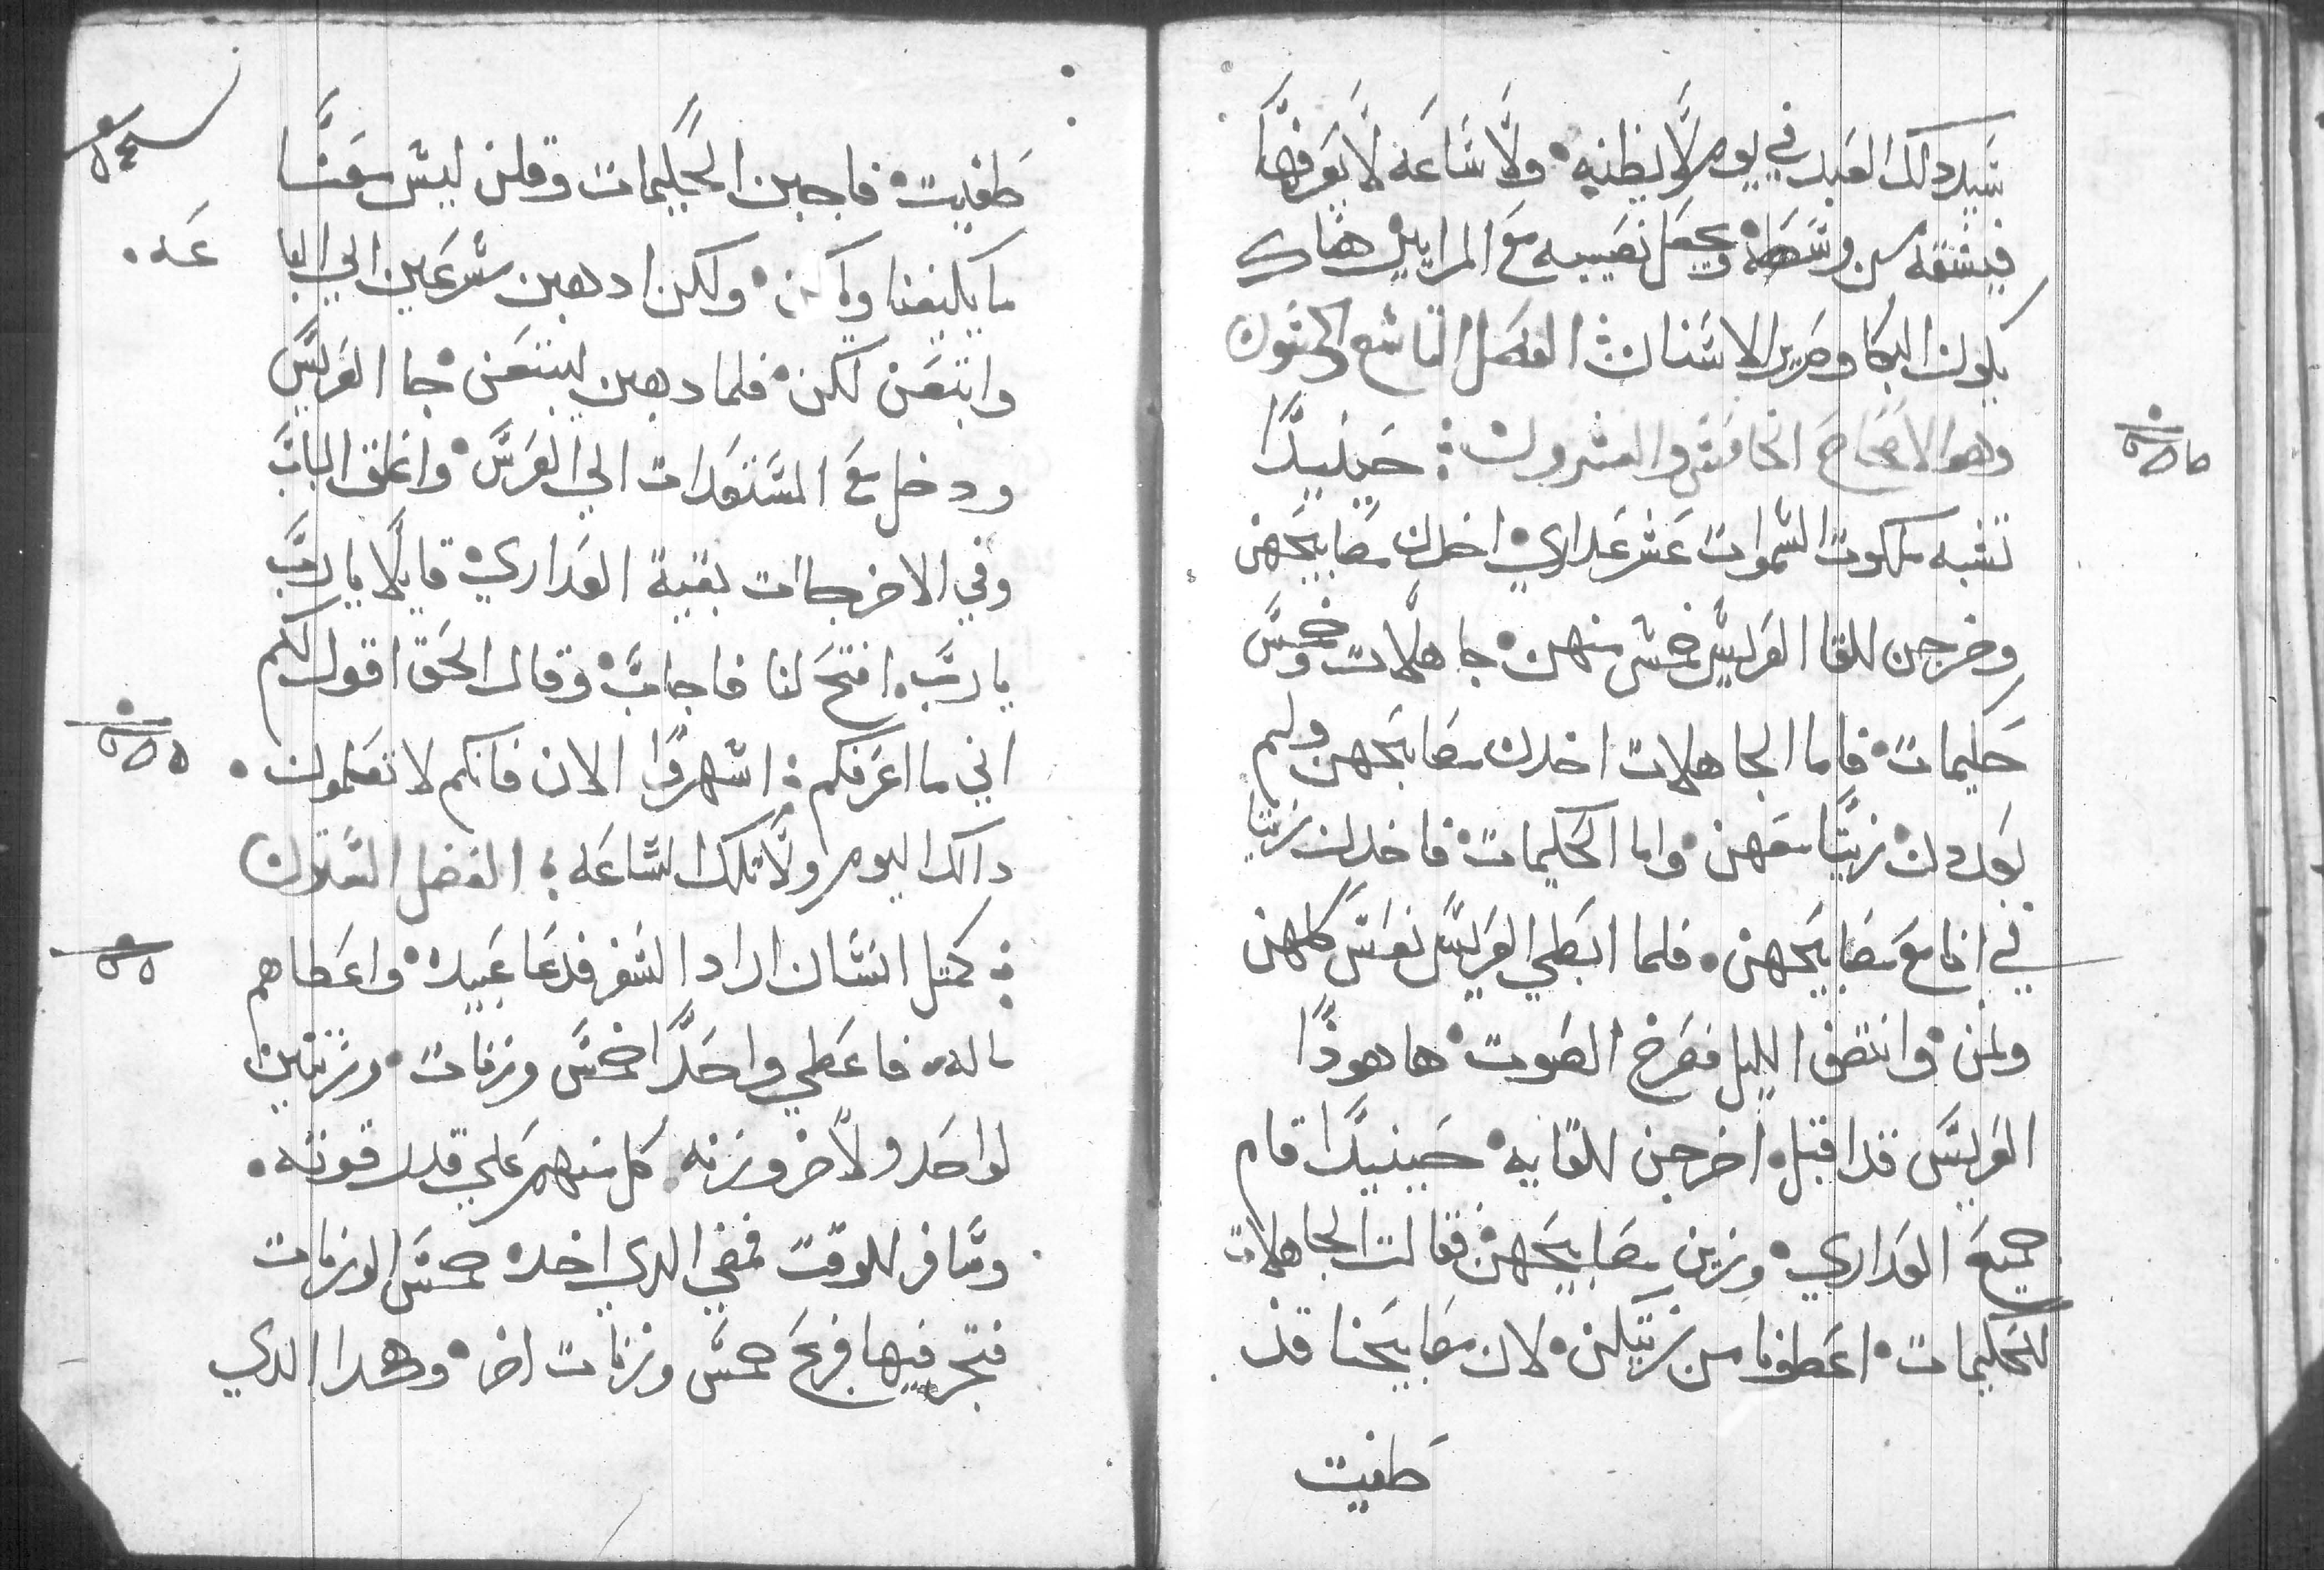 سيد دلك العبد في يوم لا يظنه ولا ساعه لا يعرفها
فيشقه من وسطه ويجعل نصيبه مع المرايين هناك
يكون البكا وصرير الاسنان الفصل التاسع والخمسون
وهو الاصحاح الخامس والعشرون حينيدا
تشبه ملكوت السموات عشر عداري اخدن مصابيحهن
وخرجن للقا العريس خمس منهن جاهلات وخمس
حكيمات فاما الجاهلات اخدن مصابيحهن ولم
زيتا معهن واما الحكيمات فاخدن زيتا
في انا مع مصابيحهن فلما ابطي العريس نعس كلهن
ونمن وانتصف الليل فصرخ الصوت ها هودا
العريس قد اقبل اخرجن للقايه حينيدا قام
جميع العداري وزين مصابيحهن فقالت الجاهلات
للحكيمات اعطونا من زيتكن لان مصابيحنا قد
طفيت
طفيت فاجبن الحكيمات وقلن ليس معنا
ما يكيفنا ولكن ادهبن مسرعين الي البا
عه
وابتعن لكن فلما دهبن ليبتعن جا العريس
ودخل مع المستعدات الي العرس واغلق الباب
وفي الاخر جات بقية العداري قايلا يا رب
يا رب افتح لنا فاجاب وقال الحق اقول لكم
اني ما اعرفكم اسهروا الان فانكم لا تعلمون
دالك اليوم ولا تلك الساعه الفصل الستون
كمتل انسان اراد السفر فدعا عبيده واعطاهم
ماله فاعطي واحدا خمس وزنات وزنتين
لواحد ولاخر وزنه كل منهم علي قدر قوته
وسافر للوقت فمضي الدي اخد خمس الوزنات
فتجر فيها فربح خمس وزنات اخر وهدا الدي